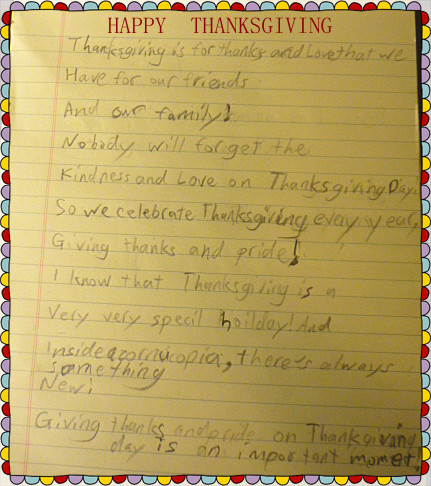 HAPPY THANKSGIVING
Thanksgiving is for thanks and Love that we
Have for our friends
And our family!
Nobody will forget the
Kindness and Love on Thanksgiving Day.
So we celebrate Thanksgiving every year,
Giving thanks and pride!
I know that Thanksgiving is a
Very very specil hoilday! And
Inside a cornucopia, there's always
something
New!
Giving thanks and pride on Thanksgiving
day is an important momet!